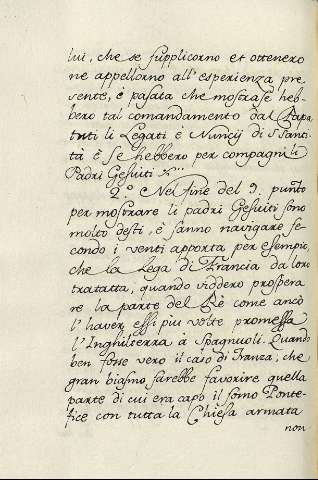 lui, che se supplicorno et ottenero
ne appellorno all'esperienza pre
sente, è pasata che mostrase heb-
bero tal comandamento dal Papa
tutti li Legati è Nuncij di S Santi-
tà è se hebbero per compagni li
Padri Gesuiti
2.° Nel fine del 9. punto
per mostrare li padri Gesuiti sono
molto desti, è sanno navigare se-
condo i venti apporta per esempio,
che la Lega di Francia da loro
trattata, quando viddero prospera
re la parte del Rè come ancò
l'haver essi più volte promessa
l'Inghilterra à Spagnuoli. Quando
ben fose vero il caso di Franza, che
gran biasmo sarebbe favorire quella
parte di cui era capo il somo Ponte-
fice con tutta la Chiesa armata
non